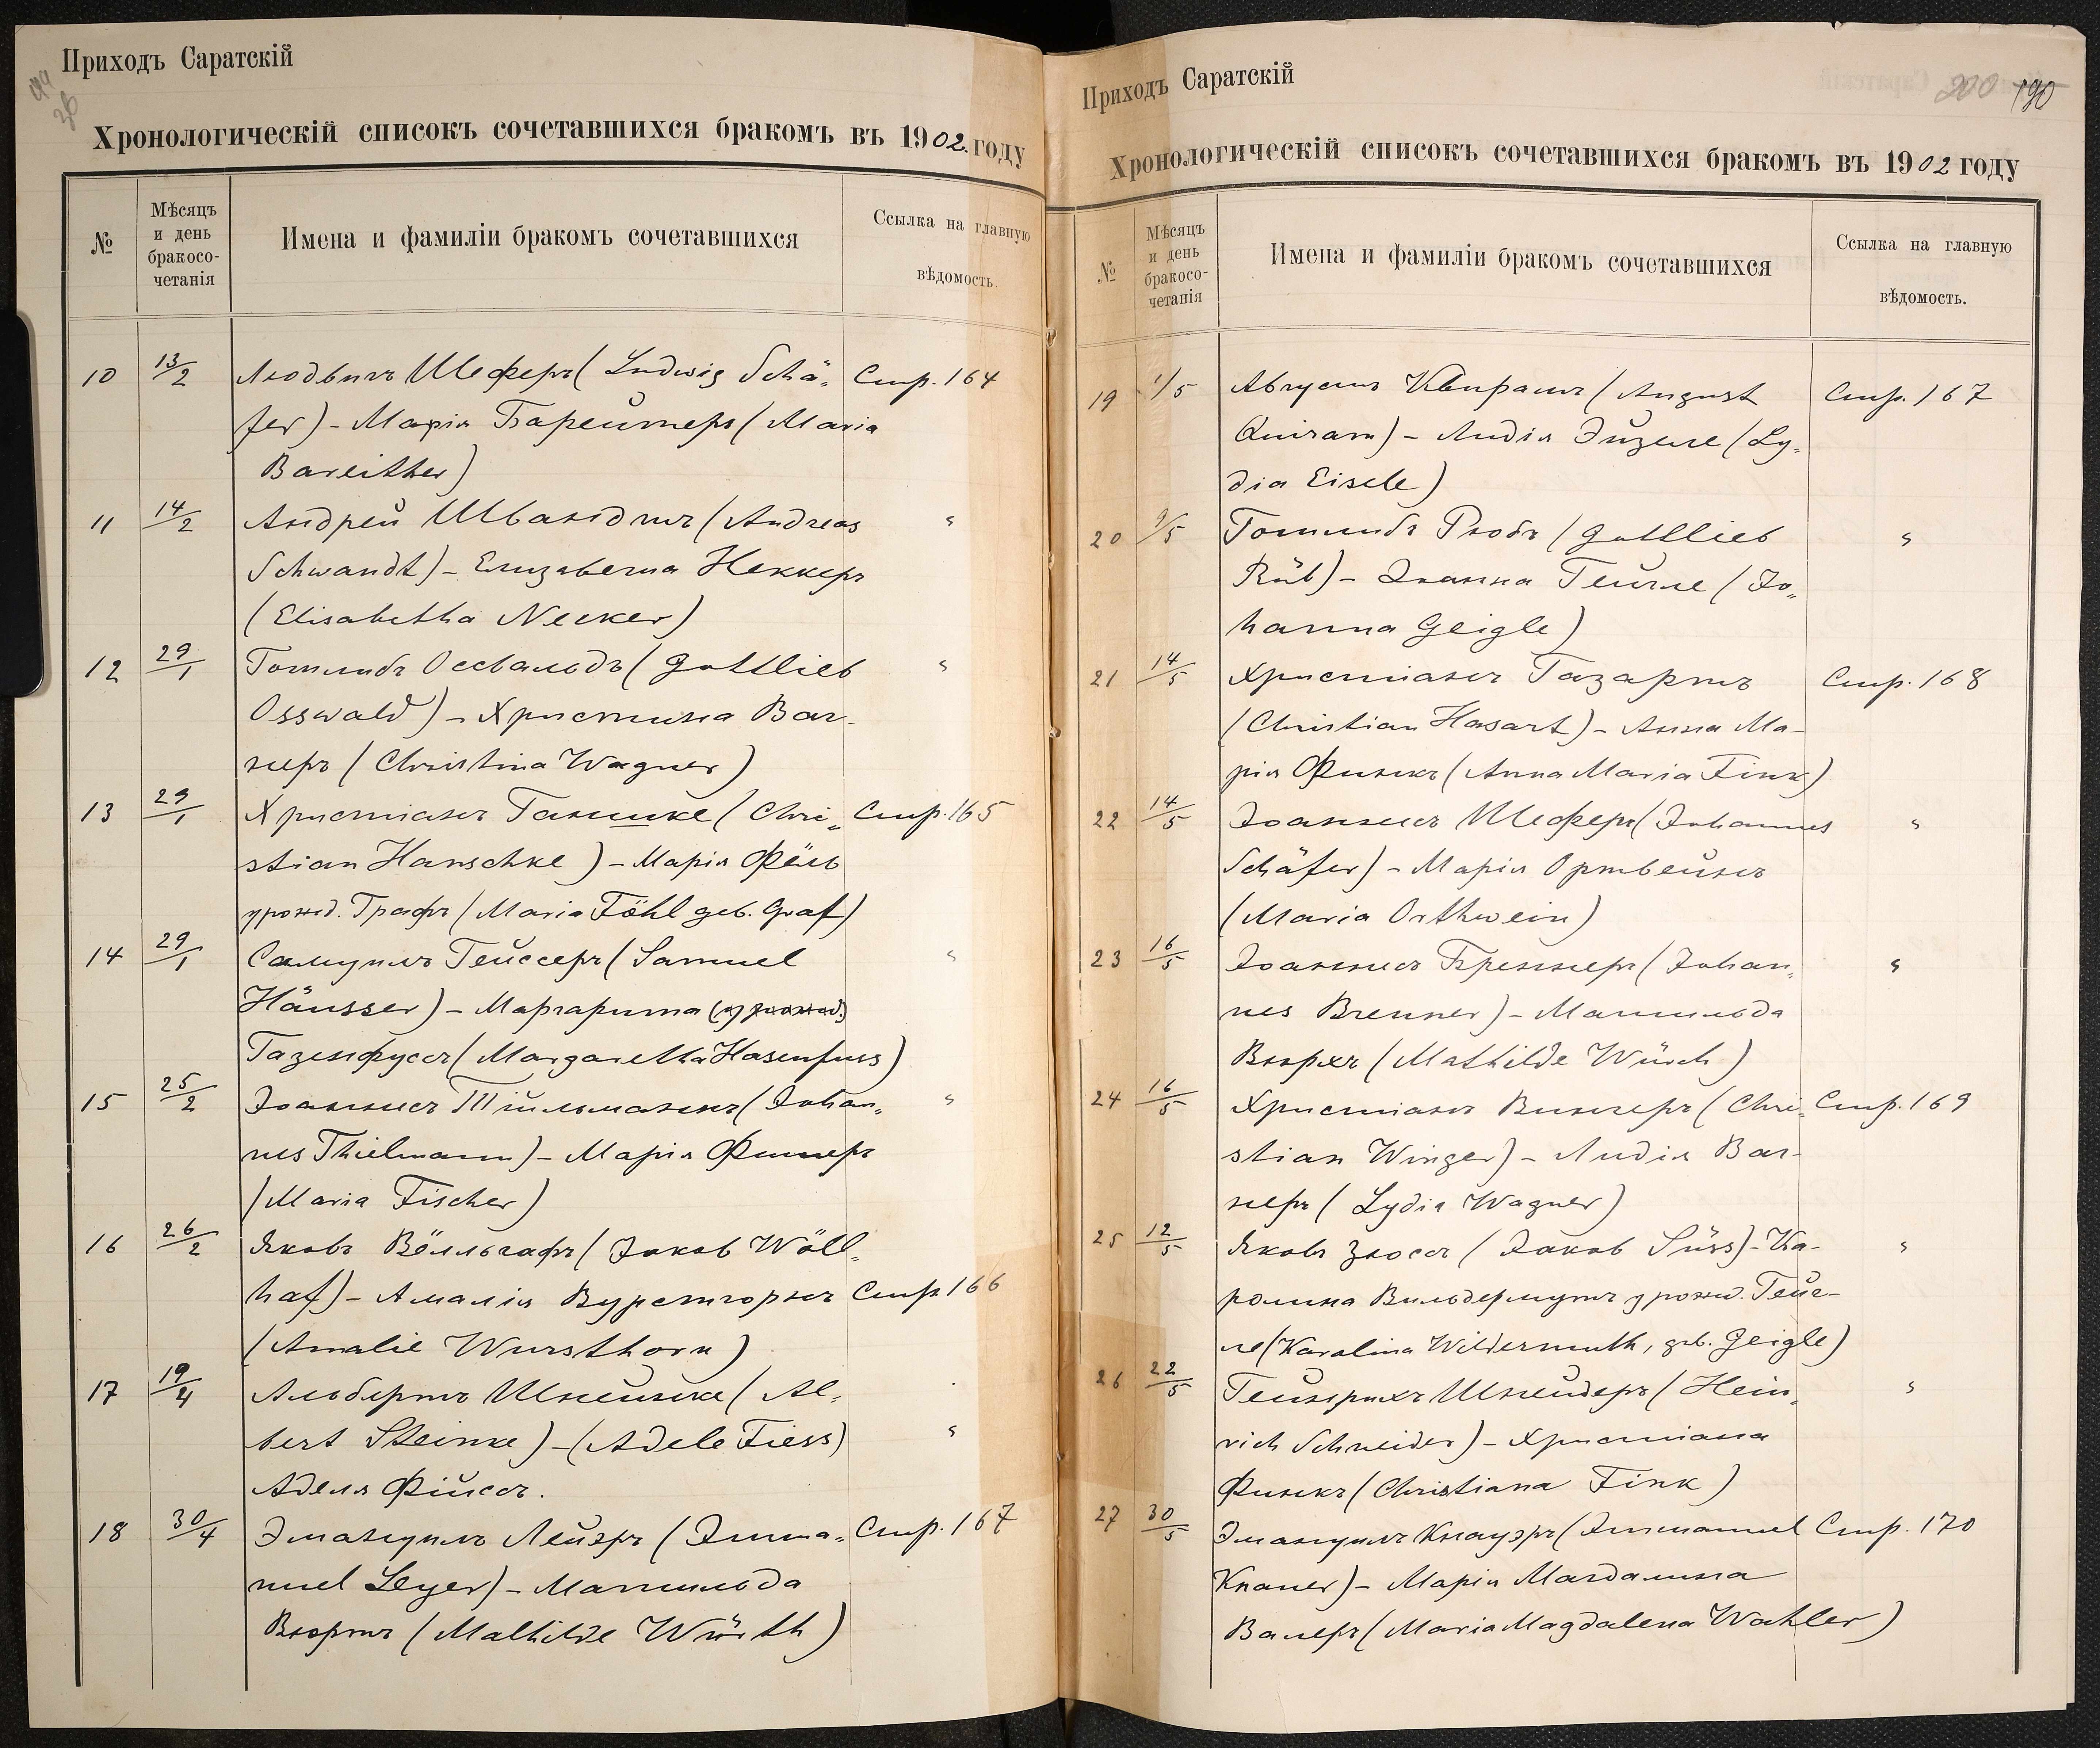 Приходъ Саратскій
Хронологическій списокъ сочетавшихся бракомъ въ 1902. году
№
Мѣсяцъ
и день
бракосо-
четанія
Имена и фамиліи бракомъ сочетавшихся
Ссылка на главную
вѣдомость
10 13/2 Людвигъ Шеферъ (Ludwig Schä- Стр. 164
fer) - Марія Барейтеръ (Maria
Bareither)
11 14/2 Андрей Швандтъ (Andreas "
Schwandt) - Елизавета Неккеръ
(Elisabetha Necker)
12 29/1 Готлибъ Оссвальдъ (Gottlieb "
Osswald) - Христина Ваг-
неръ (Christina Wagner)
13 29/1 Христіанъ Ганшке (Chri- Стр. 165
stian Hanschke) - Марія Фёль
урожд. Графъ (Maria Föhl geb. Graf)
14 29/1 Самуилъ Гейссеръ (Samuel "
Häusser) - Маргарита (урожд.)
Газенфусъ (Margaretha Hasenfuss)
15 25/2 Іоаннесъ Тільманнъ (Johan- "
nes Thielmann) - Марія Фишеръ
(Maria Fischer)
16 26/2 Яковъ Вёлльгафъ (Jakob Wöll-
haf) - Амалія Вурстгорнъ Стр. 166
(Amalie Wursthorn)
17 19/4 Альбертъ Штейнке (Al-
bert Steinke) - (Adele Fiess) "
Аделя Фійсъ.
18 30/4 Эмануилъ Лейэръ (Imma- Стр. 167
nuel Leyer) - Матильда
Вюртъ (Mathilde Würth)
Приходъ Саратскій
200 190
Хронологическій списокъ сочетавшихся бракомъ въ 1902 году
№
Мѣсяцъ
и день
бракосо-
четанія
Имена и фамиліи бракомъ сочетавшихся
Ссылка на главную
вѣдомость.
19 1/5 Августъ Квирамъ (August Стр. 167
Quiram) - Лидія Эйзеле (Ly-
dia Eisele)
20 9/5 Готлибъ Рюбъ (Gottlieb "
Rüb) - Іоанна Гейгле (Jo-
hanna Geigle)
21 14/5 Христіанъ Газартъ Стр. 168
(Christian Hasart) - Анна Ма-
рія Финкъ (Anna Maria Fink)
22 14/5 Іоаннесъ Шеферъ (Johannes "
Schäfer) - Марія Ортвейнъ
(Maria Orthwein)
23 16/5 Іоаннесъ Бреннеръ (Johan- "
nes Brenner) - Матильда
Вюрхъ (Mathilde Würch)
24 16/5 Христіанъ Вингеръ (Chri- Стр. 169
stian Winger) - Лидія Ваг-
неръ (Lydia Wagner)
25 12/5 Яковъ Зюсъ (Jakob Süss) - Ка- "
ролина Вильдермутъ урожд. Гейг-
ле (Karolina Wildermuth, geb. Geigle)
26 22/5 Гейнрихъ Шнейдеръ (Hein- "
rich Schneider) - Христіана
Финкъ (Christiana Fink)
27 30/5 Эмануилъ Кнауэръ (Immanuel Стр. 170
Knauer) - Марія Магдалина
Валеръ (Maria Magdalena Wahler)